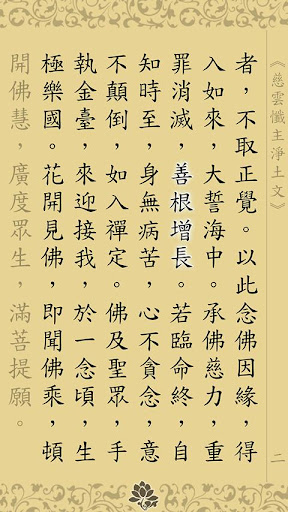 《慈雲懺主淨土文》
二
者，不取正覺。以此念佛因緣，得
入如來，大誓海中。承佛慈力，重
罪消滅，善根增長。若臨命終，自
知時至，身無病苦，心不貪念，意
不顛倒，如入禪定。佛及聖眾，手
執金臺，來迎接我，於一念頃，生
極樂國。花開見佛，即聞佛乘，頓
開佛慧，廣度眾生，滿菩提願。